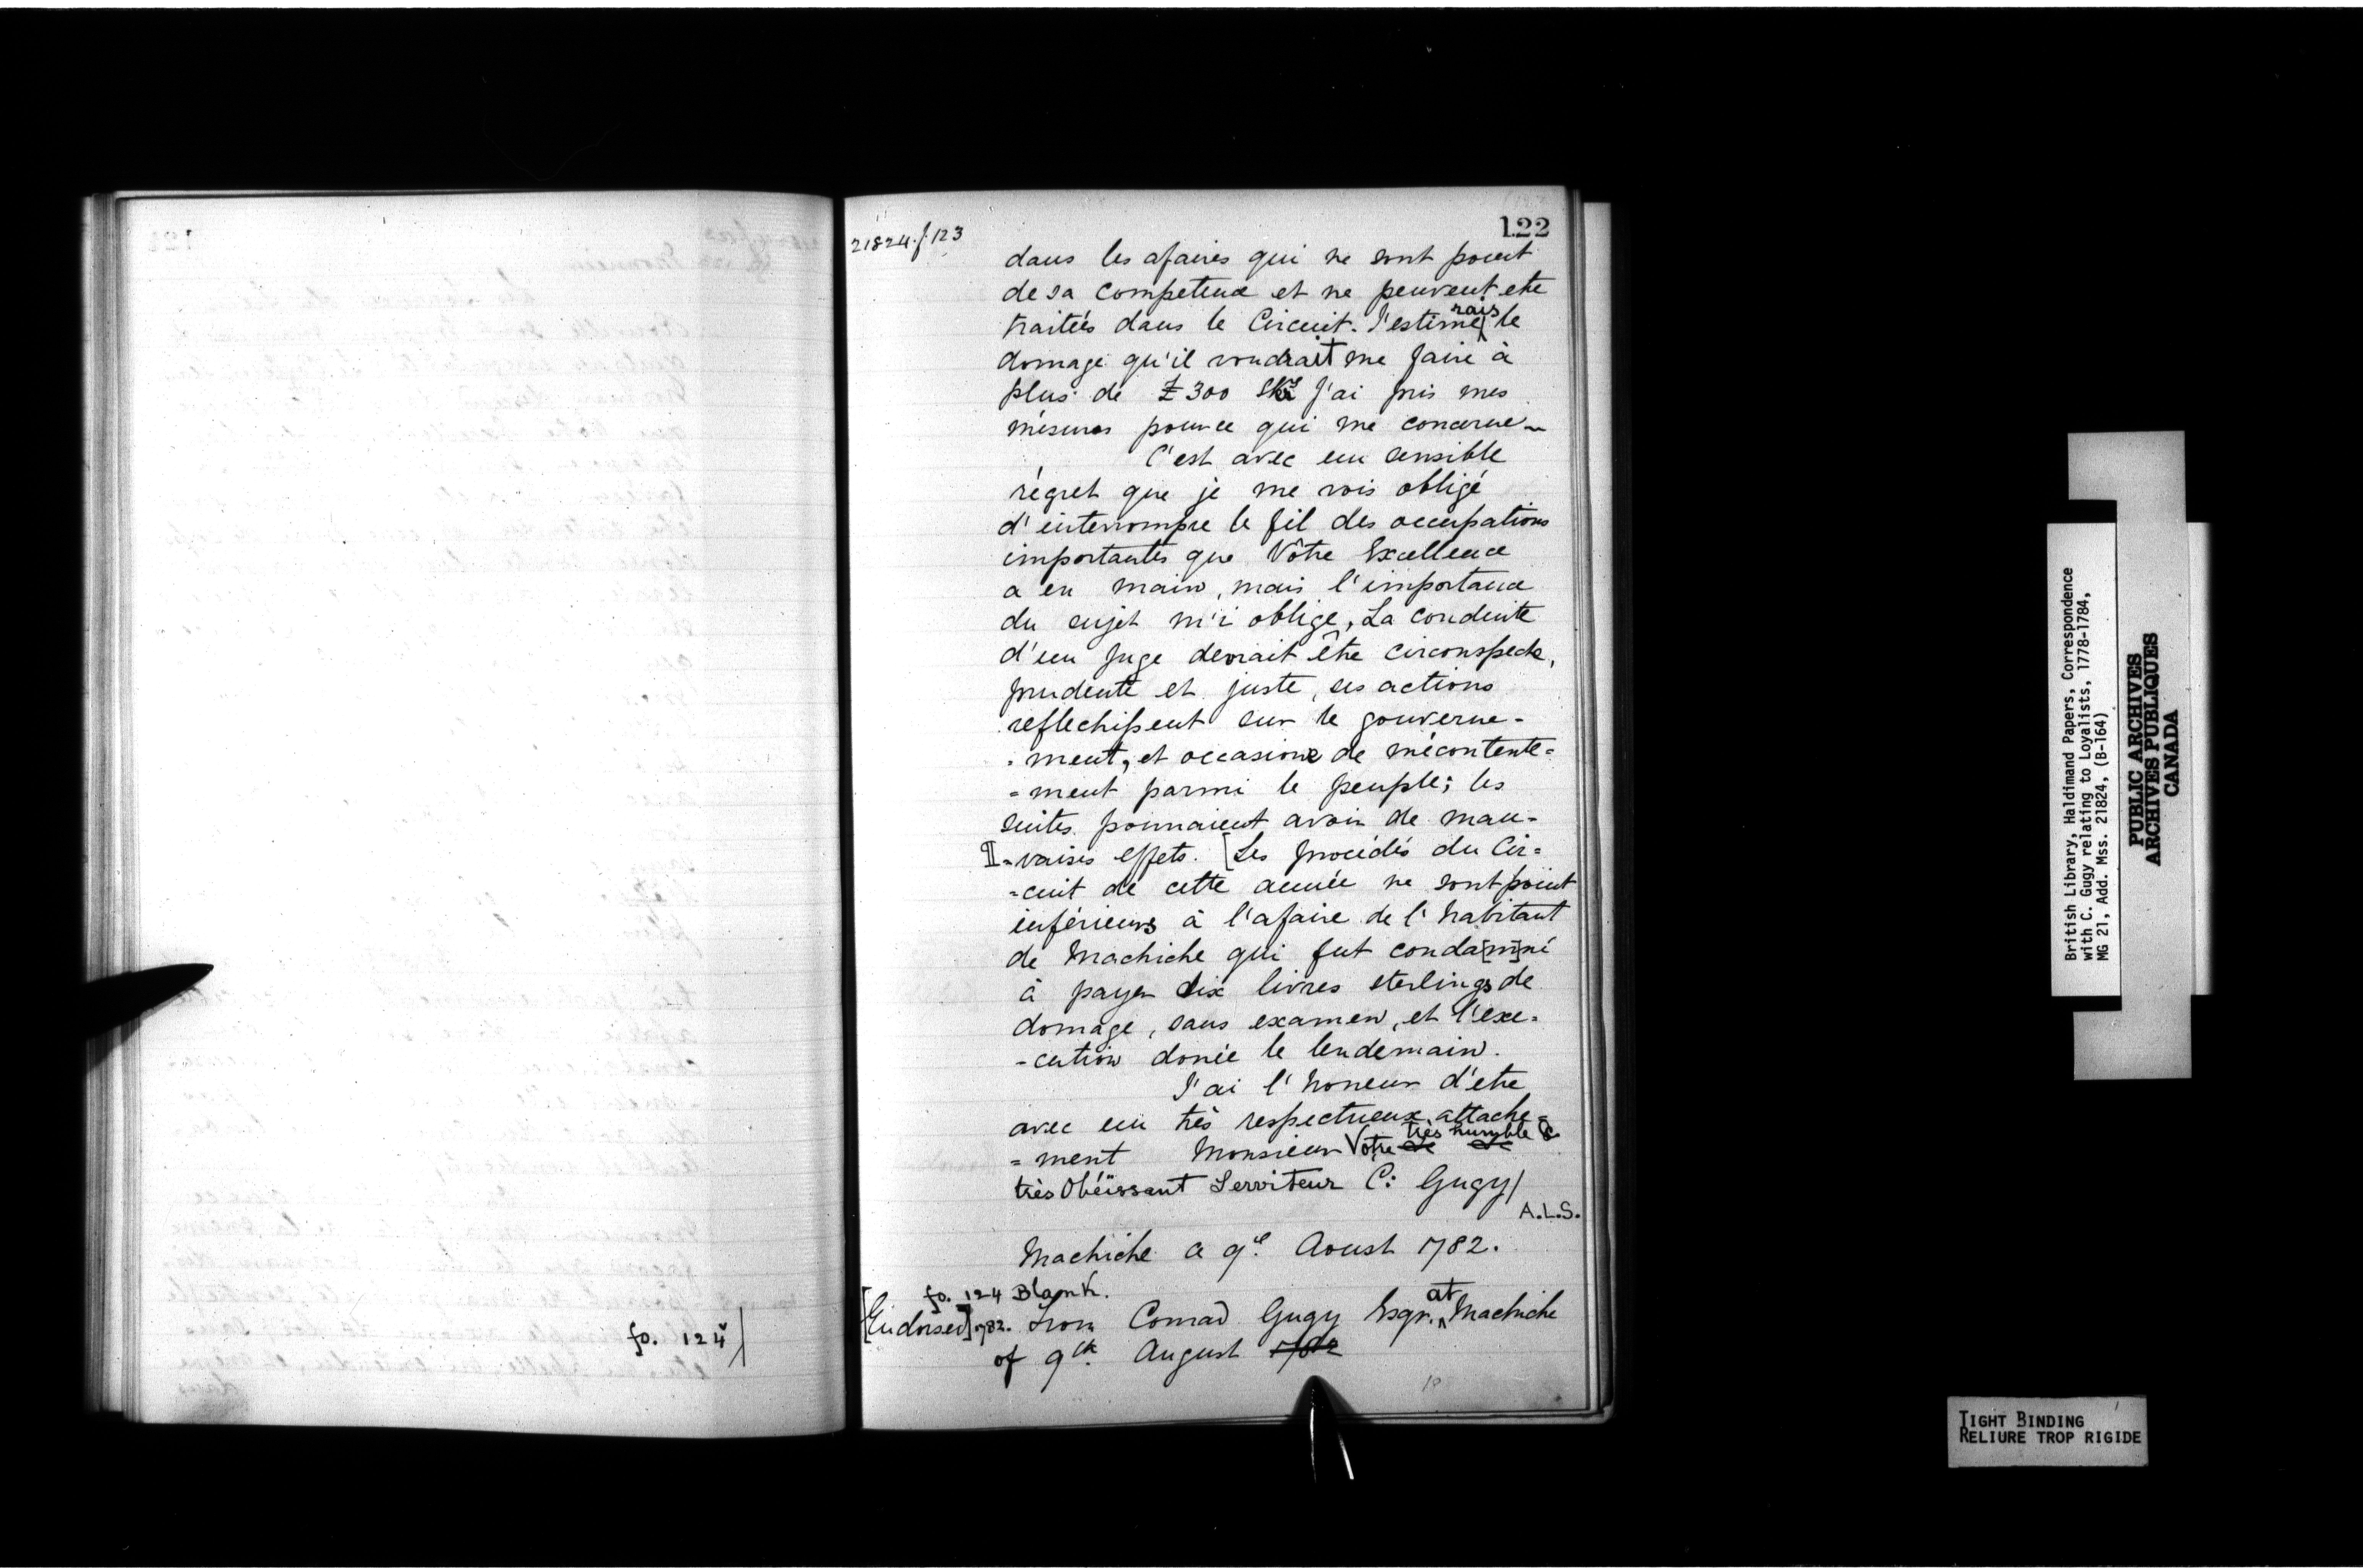 21824. f. 123
122
dans les afaires qui ne sont point
de sa competence et ne peuvent etre
traitées dans le Circuit. J'estimerais le
domage qu'il voudrait me faire à
plus de £300 j'ai pris mes
mésures pour ce qui me concerne
C'est avec un sensible
régret que je me vois obligé
d'interrompre le fil des occupations
importantes que Vôtre Excellence
a en main, mais l'importance
du sujet m'i oblige, La conduite
d'un Juge devrait être circonspecte,
prudente et juste, ses actions
reflechissent sur le gouverne-
-ment, et occasione de mécontente=
=ment parmi le peuple; les
suites pourraient avoir de mau-
-vaises effets. [Les procédés du Cir=
=cuit de cette année ne sont point
inférieurs à l'afaire de l'habitant
de Machiche qui fut conda[m]né
à payer dix livres sterlings de
domage, sans examen, et l'exe-
-cution donée le lendemain.
J'ai l'honeur d'etre
avec un très respectueux attache=
=ment Monsieur Votre très humble &
très Obéïssant Serviteur C: Gugy/
A.L.S.
Machiche ce 9e Aoust 1782.
fo. 124 Blank.
[Endorsed] 1782. From Conrad Gugy Esqr. at Machiche
of 9th August 1782
fo. 124v
British Library, Haldimand Papers, Correspondence
with C. Gugy relating to Loyalists, 1778-1784,
MG 21, Add. Mss. 21824, (B-164)
PUBLIC ARCHIVES
ARCHIVES PUBLIQUES
CANADA
TIGHT BINDING
RELIURE TROP RIGIDE